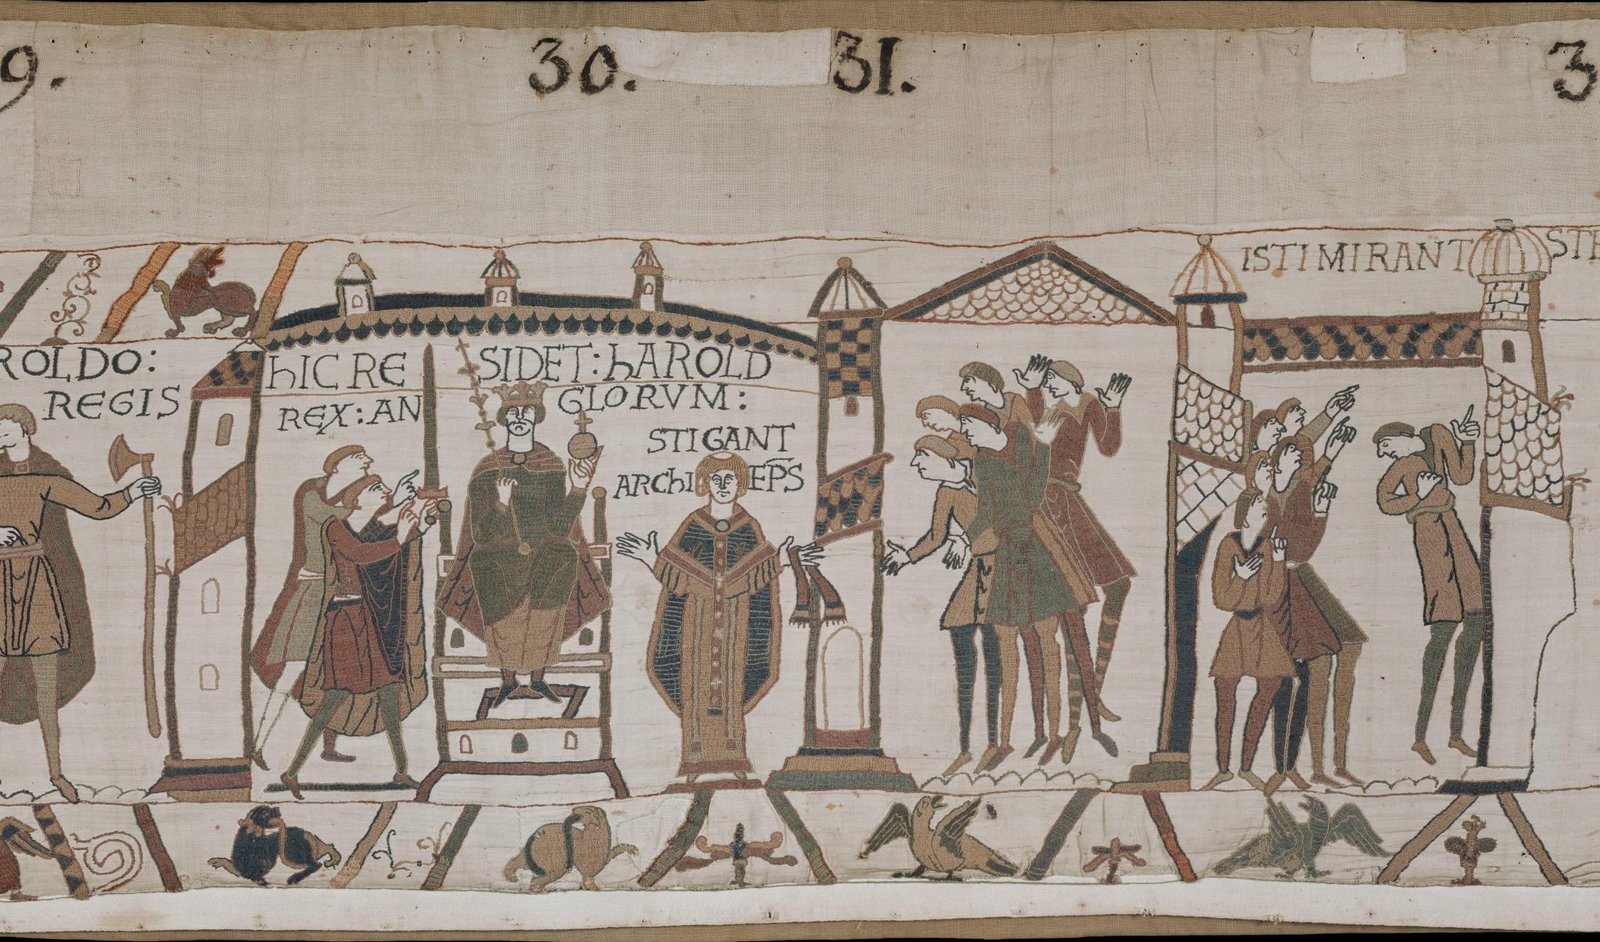 9.
30.
31.
3
ROLDO:
REGIS
hIC RE SIDET: hAROLD
REX: AN GLORVM:
STIGANT
ARChI EPS
ISTI MIRANT STE